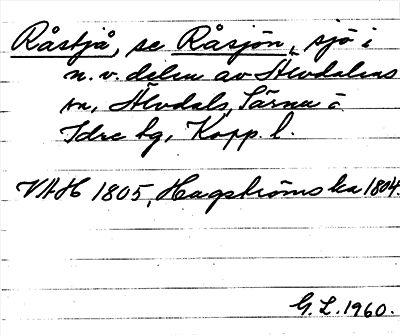 Råstjå, se Råsjön, sjö i
n.v. delen av Älvdalens
sn, Älvdals, Särna o
Idre tg, Kopp. l.
VAH 1805, Hagströms ka 1804.
G.L. 1960.